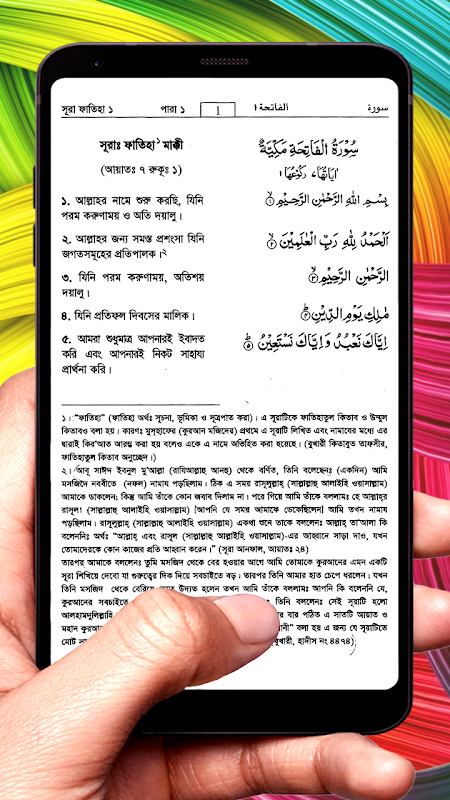 সূরা ফাতিহা ১ পারা ১ 1 الفاتحة ١ سورة
সূরাঃ ফাতিহা¹ মাক্কী
(আয়াতঃ ৭ রুকূঃ ১)
سُوْرَةُ الْفَاتِحَةِ مَكِّيَّةٌ
اٰيَاتُهَا ٧، رَكُوْعُهَا ١
১. আল্লাহর নামে শুরু করছি, যিনি
পরম করুণাময় ও অতি দয়ালু।
بِسْمِ اللهِ الرَّحْمٰنِ الرَّحِيْمِ ①
২. আল্লাহর জন্য সমস্ত প্রশংসা যিনি
জগতসমূহের প্রতিপালক।²
اَلْحَمْدُ لِلّٰهِ رَبِّ الْعٰلَمِيْنَ ②
৩. যিনি পরম করুণাময়, অতিশয়
দয়ালু।
الرَّحْمٰنِ الرَّحِيْمِ ③
৪. যিনি প্রতিফল দিবসের মালিক।
مٰلِكِ يَوْمِ الدِّيْنِ ④
৫. আমরা শুধুমাত্র আপনারই ইবাদত
করি এবং আপনারই নিকট সাহায্য
প্রার্থনা করি।
اِيَّاكَ نَعْبُدُ وَاِيَّاكَ نَسْتَعِيْنُ ⑤
১। "ফাতিহা" (ফাতিহা অর্থঃ সূচনা, ভূমিকা ও সূত্রপাত করা)। এ সূরাটিকে ফাতিহাতুল কিতাব ও উম্মুল
কিতাবও বলা হয়। কারণঃ মুসহাফের (কুরআন মজিদের) প্রথমে এ সূরাটি লিখিত এবং নামাযের মধ্যে এর
দ্বারাই কির'আত আরম্ভ করা হয় বলেও একে এ নামে অভিহিত করা হয়েছে। (বুখারী কিতাবুত তাফসীর,
ফাতিহাতুল কিতাব অনুচ্ছেদ।)
২। আবু সাঈদ ইবনুল মু'আল্লা (রাযিআল্লাহু আনহু) থেকে বর্ণিত, তিনি বলেছেনঃ (একদিন) আমি
মসজিদে নববীতে (নফল) নামায পড়ছিলাম। ঠিক এ সময় রাসূলুল্লাহ্ (সাল্লাল্লাহু আলাইহি ওয়াসাল্লাম)
আমাকে ডাকলেন; কিন্তু আমি তাঁকে কোন জবাব দিলাম না। পরে গিয়ে আমি তাঁকে বললামঃ হে আল্লাহ্‌র
রাসূল! (সাল্লাল্লাহু আলাইহি ওয়াসাল্লাম) [আপনি যে সময় আমাকে ডেকেছিলেন] আমি তখন নামায
পড়ছিলাম। রাসূলুল্লাহ্ (সাল্লাল্লাহু আলাইহি ওয়াসাল্লাম) একথা শুনে তাকে বললেনঃ আল্লাহ্ তা'আলা কি
বলেননিঃ অর্থঃ "আল্লাহ্ এবং রাসূল (সাল্লাল্লাহু আল্লাইহি ওয়াসাল্লাম)-এর আহ্বানে সাড়া দাও, যখন
তোমাদেরকে কোন কাজের প্রতি আহ্বান করেন।" (সূরা আনফাল, আয়াতঃ ২৪)
তারপর আমাকে বললেনঃ তুমি মসজিদ থেকে বের হওয়ার আগে আমি তোমাকে কুরআনের এমন একটি
সূরা শিখিয়ে দেবো যা গুরুত্বের দিক দিয়ে সবচাইতে বড়। তারপর তিনি আমার হাত চেপে ধরলেন। যখন
তিনি মসজিদ থেকে বেরিয়ে আসতে উদ্যত হলেন তখন আমি তাঁকে বললামঃ আপনি কি বলেননি যে,
কুরআনের সবচাইতে তিনি বললেনঃ সেই সূরাটি হলো
আলহামদুলিল্লাহি র বার পঠিত এ সাতটি আয়াত ও
মহান কুরআ নী" বলা হয় এ জন্য যে সূরাটিতে
মোট সা বুখারী, হাদীস নং ৪৪৭৪)